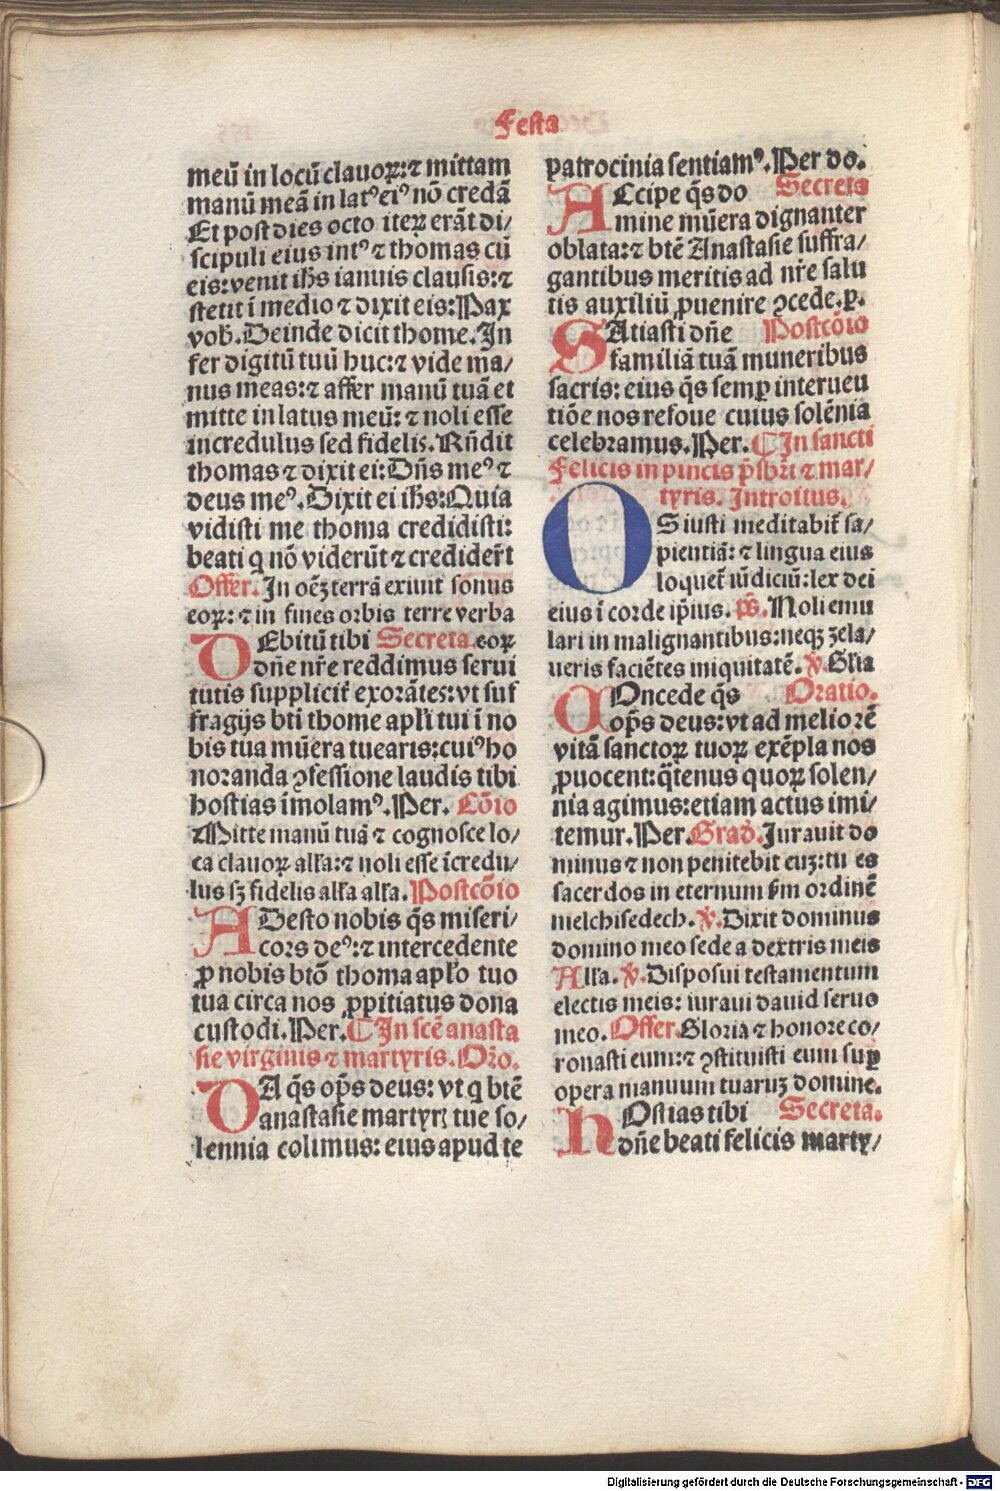 Festa
meū in locū clauoꝝ: ⁊ mittam
manū meā in latꝰ eiꝰ nō credā
Et post dies octo iteꝝ erāt di/
scipuli eius intꝰ ⁊ thomas cū
eis: venit ihs ianuis clausis: ⁊
stetit ī medio ⁊ dixit eis: Pax
vob̄. Deinde dicit thome. In
fer digitū tuū huc: ⁊ vide ma/
nus meas: ⁊ affer manū tuā et
mitte in latus meū: ⁊ noli esse
incredulus sed fidelis. Rn̄dit
thomas ⁊ dixit ei: Dn̄s meꝰ ⁊
deus meꝰ. Dixit ei ihs: Quia
vidisti me thoma credidisti:
beati q nō viderūt ⁊ credider̄t
Offer. In oēꝫ terrā exiuit sonus
eoꝝ: ⁊ in fines orbis terre verba
DEbitū tibi Secreta. eoꝝ
dn̄e nr̄e reddimus serui
tutis suppliciť exorātes: vt suf
fragijs bti thome apli tui ī no
bis tua mūera tuearis: cuiꝰ ho
noranda ꝯfessione laudis tibi
hostias īmolamꝰ. Per. Cōio
Mitte manū tuā ⁊ cognosce lo/
ca clauoꝝ alła: ⁊ noli esse īcredu/
lus sꝫ fidelis alła alła. Postcōio
ADesto nobis q̄s miseri/
cors deꝰ: ⁊ intercedente
ꝓ nobis btō thoma apło tuo
tua circa nos ꝓpitiatus dona
custodi. Per. ¶ In scē anasta
sie virginis ⁊ martyris. Oŕo.
DA q̄s op̄s deus: vt q btē
anastasie martyrꝭ tue so/
lennia colimus: eius apud te
patrocinia sentiamꝰ. Per do.
ACcipe q̄s do Secreta
mine mūera dignanter
oblata: ⁊ btē Anastasie suffra/
gantibus meritis ad nr̄e salu
tis auxiliū ꝓuenire ꝯcede. p̄.
SAtiasti dn̄e Postcōio
familiā tuā muneribus
sacris: eius q̄s semꝑ interueu
tiōe nos refoue cuius solēnia
celebramus. Per. ¶ In sancti
Felicis in pincis p̄sbri ⁊ mar/
tyris. Introitus.
OS iusti meditabiť sa/
pientiā: ⁊ lingua eius
loqueť iudiciū: lex dei
eius ī corde ip̄ius. p̄s. Noli emu
lari in malignantibus: neqꝫ zela/
ueris faciētes iniquitatē. ℣. Głia
COncede q̄s Oratio.
op̄s deus: vt ad meliorē
vitā sanctoꝝ tuoꝝ exēpla nos
ꝓuocent: q̄tenus quoꝝ solen/
nia agimus: etiam actus imi/
temur. Per. Grad. Iurauit do
minus ⁊ non penitebit euꝫ: tu es
sacerdos in eternum s̄m ordinē
melchisedech. ℣. Dixit dominus
domino meo sede a dextris meis
Alła. ℣. Disposui testamentum
electis meis: iuraui dauid seruo
meo. Offer. Gloria ⁊ honore co/
ronasti eum: ⁊ ꝯstituisti eum suꝑ
opera manuum tuaruꝫ domine.
HOstias tibi Secreta.
dn̄e beati felicis marty/
Digitalisierung gefördert durch die Deutsche Forschungsgemeinschaft - DFG